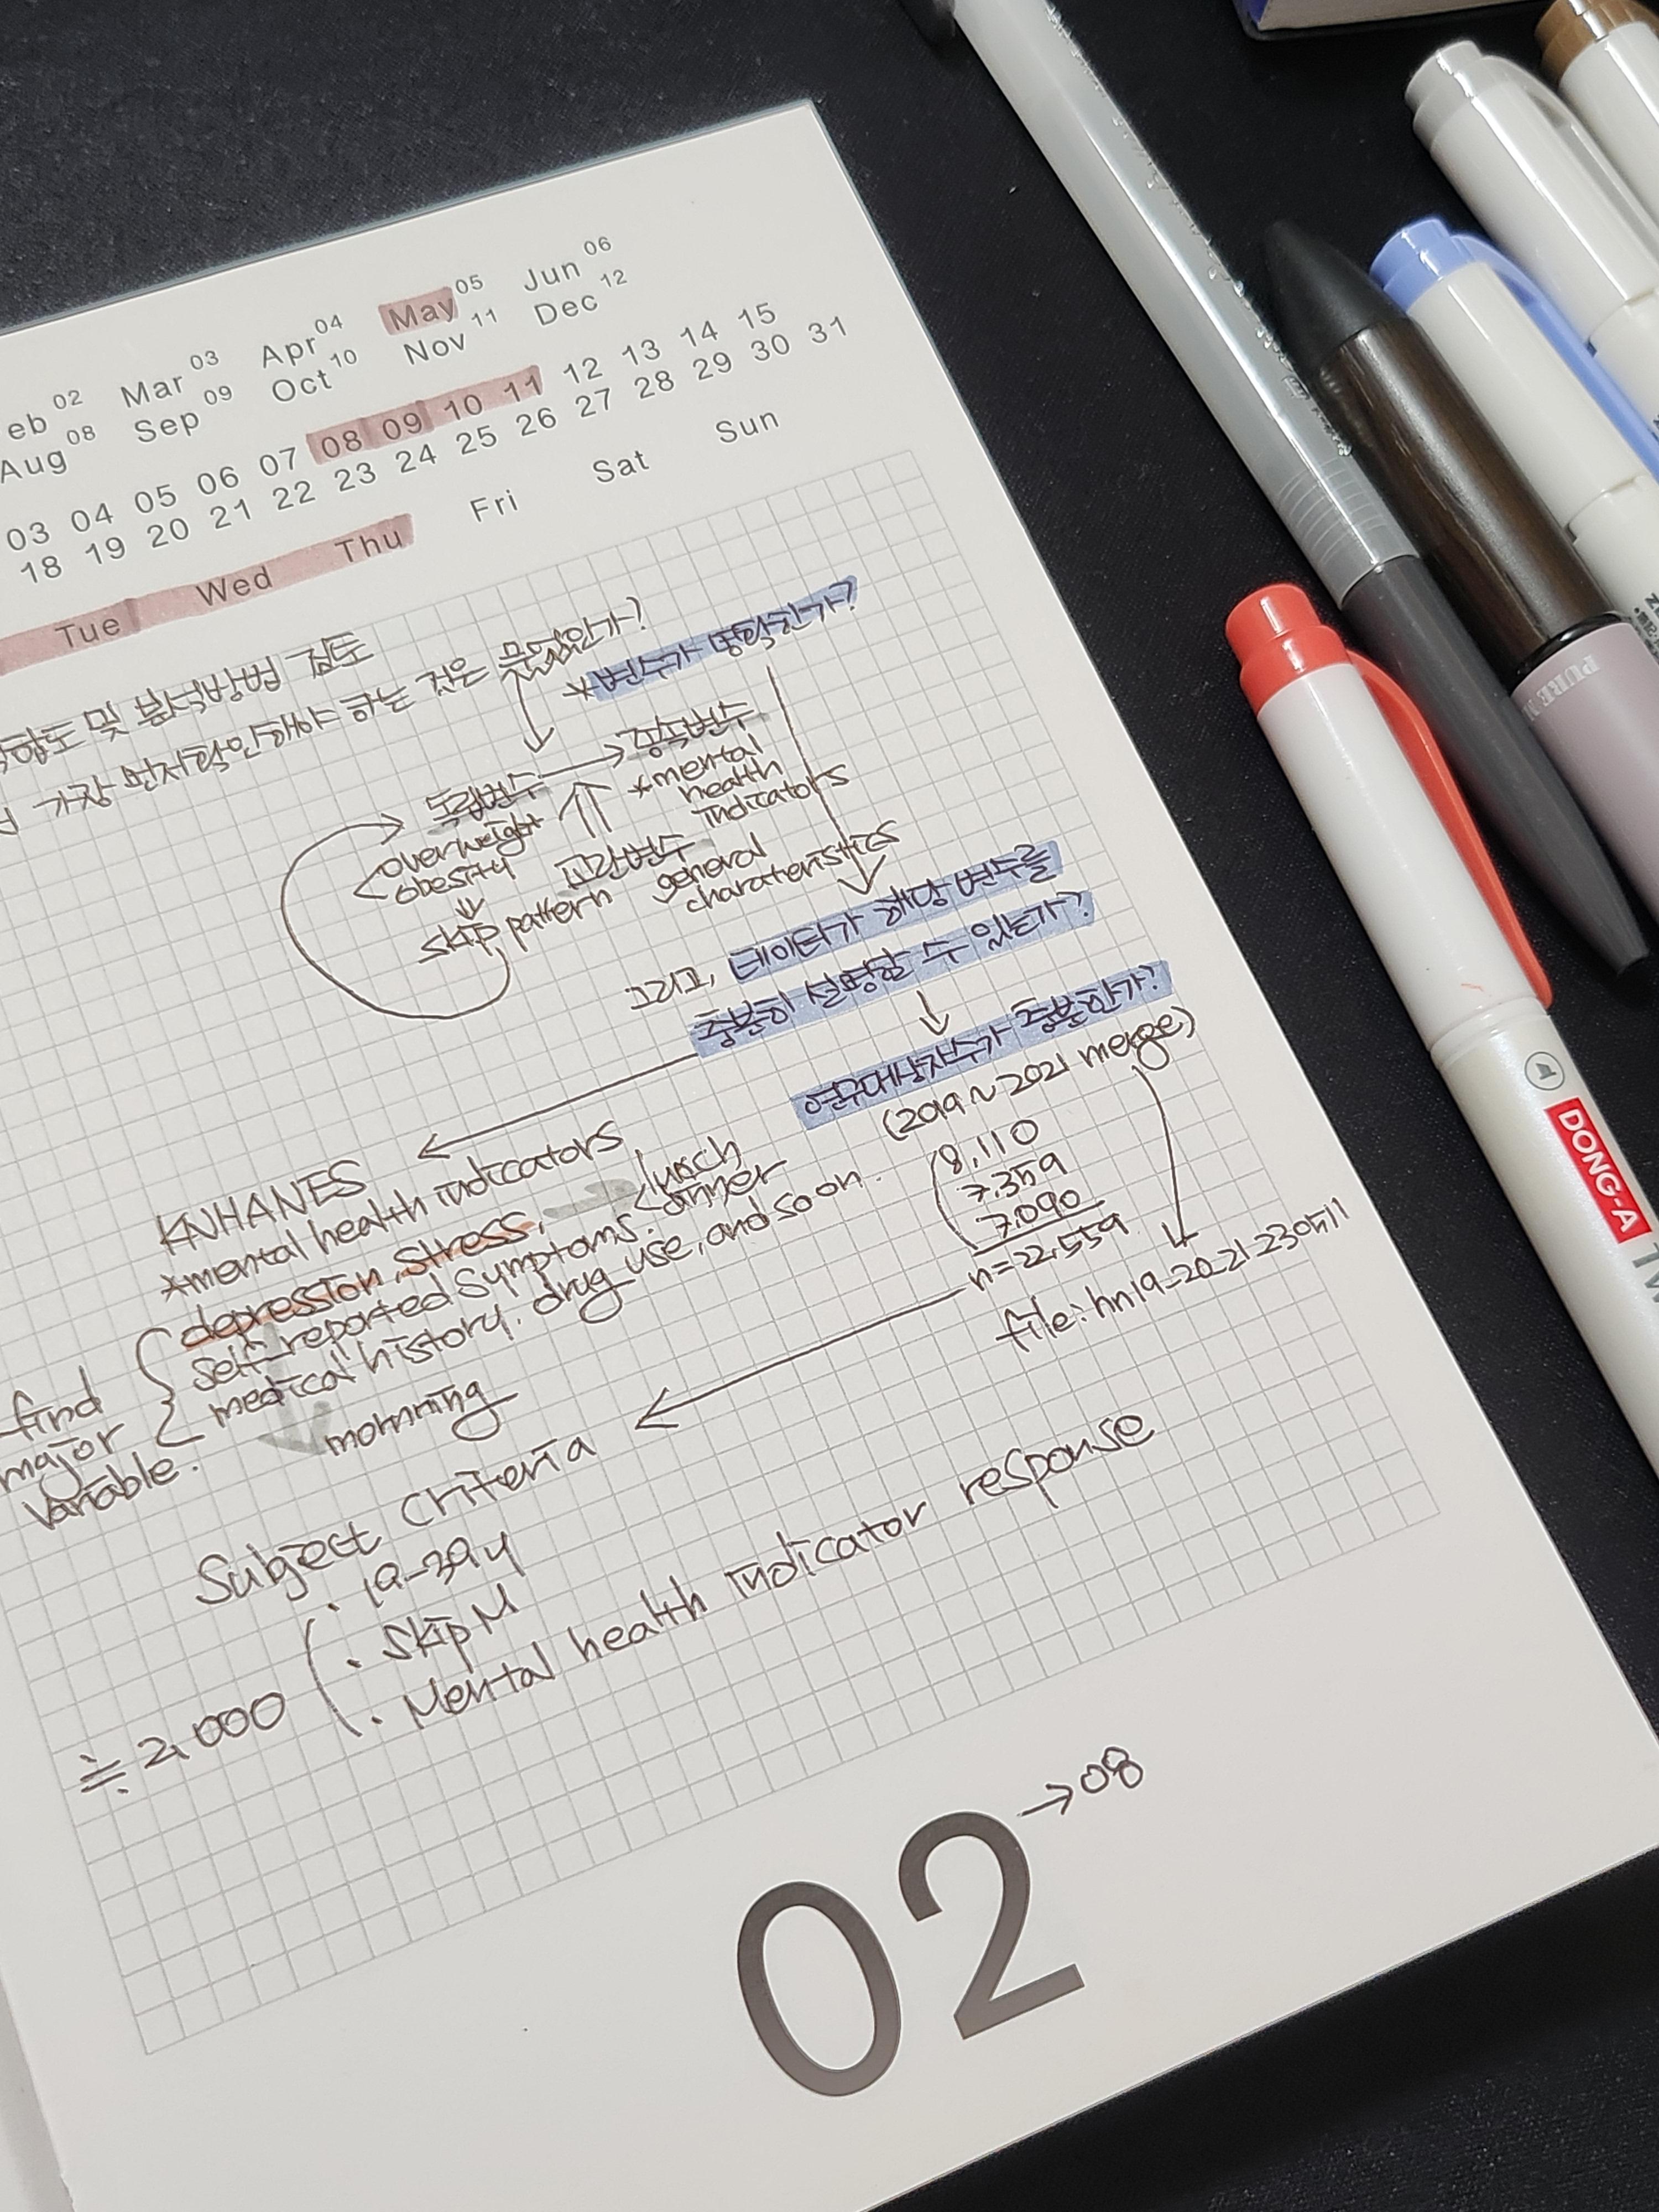 eb 02 Mar 03 Apr 04 May 05 Jun 06
Aug 08 Sep 09 Oct 10 Nov 11 Dec 12
03 04 05 06 07 08 09 10 11 12 13 14 15
18 19 20 21 22 23 24 25 26 27 28 29 30 31
Tue Wed Thu Fri Sat Sun
합도 및 분석방법 검토
가장 먼저 확인해야 하는 것은 무엇인가?
*변수가 명확한가?
독립변수 → 종속변수
overweight
obesity
*mental
health
indicators
skip pattern
교란변수
general
charateristics
그리고, 데이터가 해당 변수를
충분히 설명할 수 있는가?
연구대상자수가 충분한가?
(2019~2021 merge)
8,110
7,359
7,090
n=22,559
file: hn19_20_21_230511
KNHANES
*mental health indicators
depression, stress, lunch
dinner
self_reported symptoms.
medical history, drug use, and so on.
morning
find
major
variable.
Subject criteria
· 19-39y
· Skip M
· Mental health indicator response
≒ 2,000
02 → 08
DONG-A
PURE